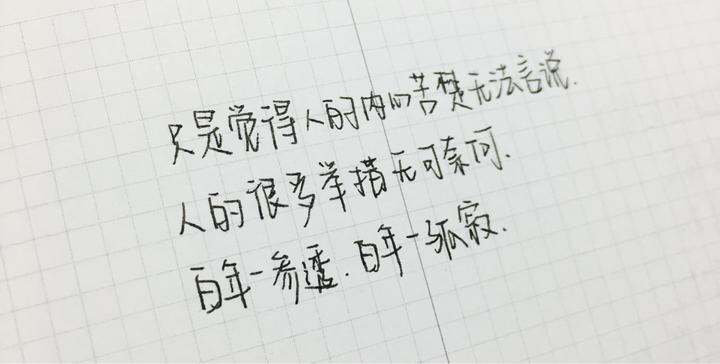 只是觉得人的内心苦楚无法言说.
人的很多举措无可奈何.
百年一参透.百年一孤寂.